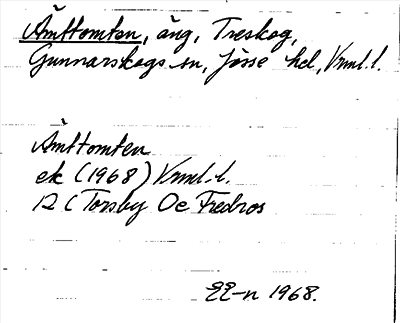 Åmttomten, äng, Treskog,
Gunnarskogs sn, Jösse hd, Vrml.l.
Åmttomten
ek (1968) Vrml.l.
12 C Torsby Oe Fredros
EE-n 1968.